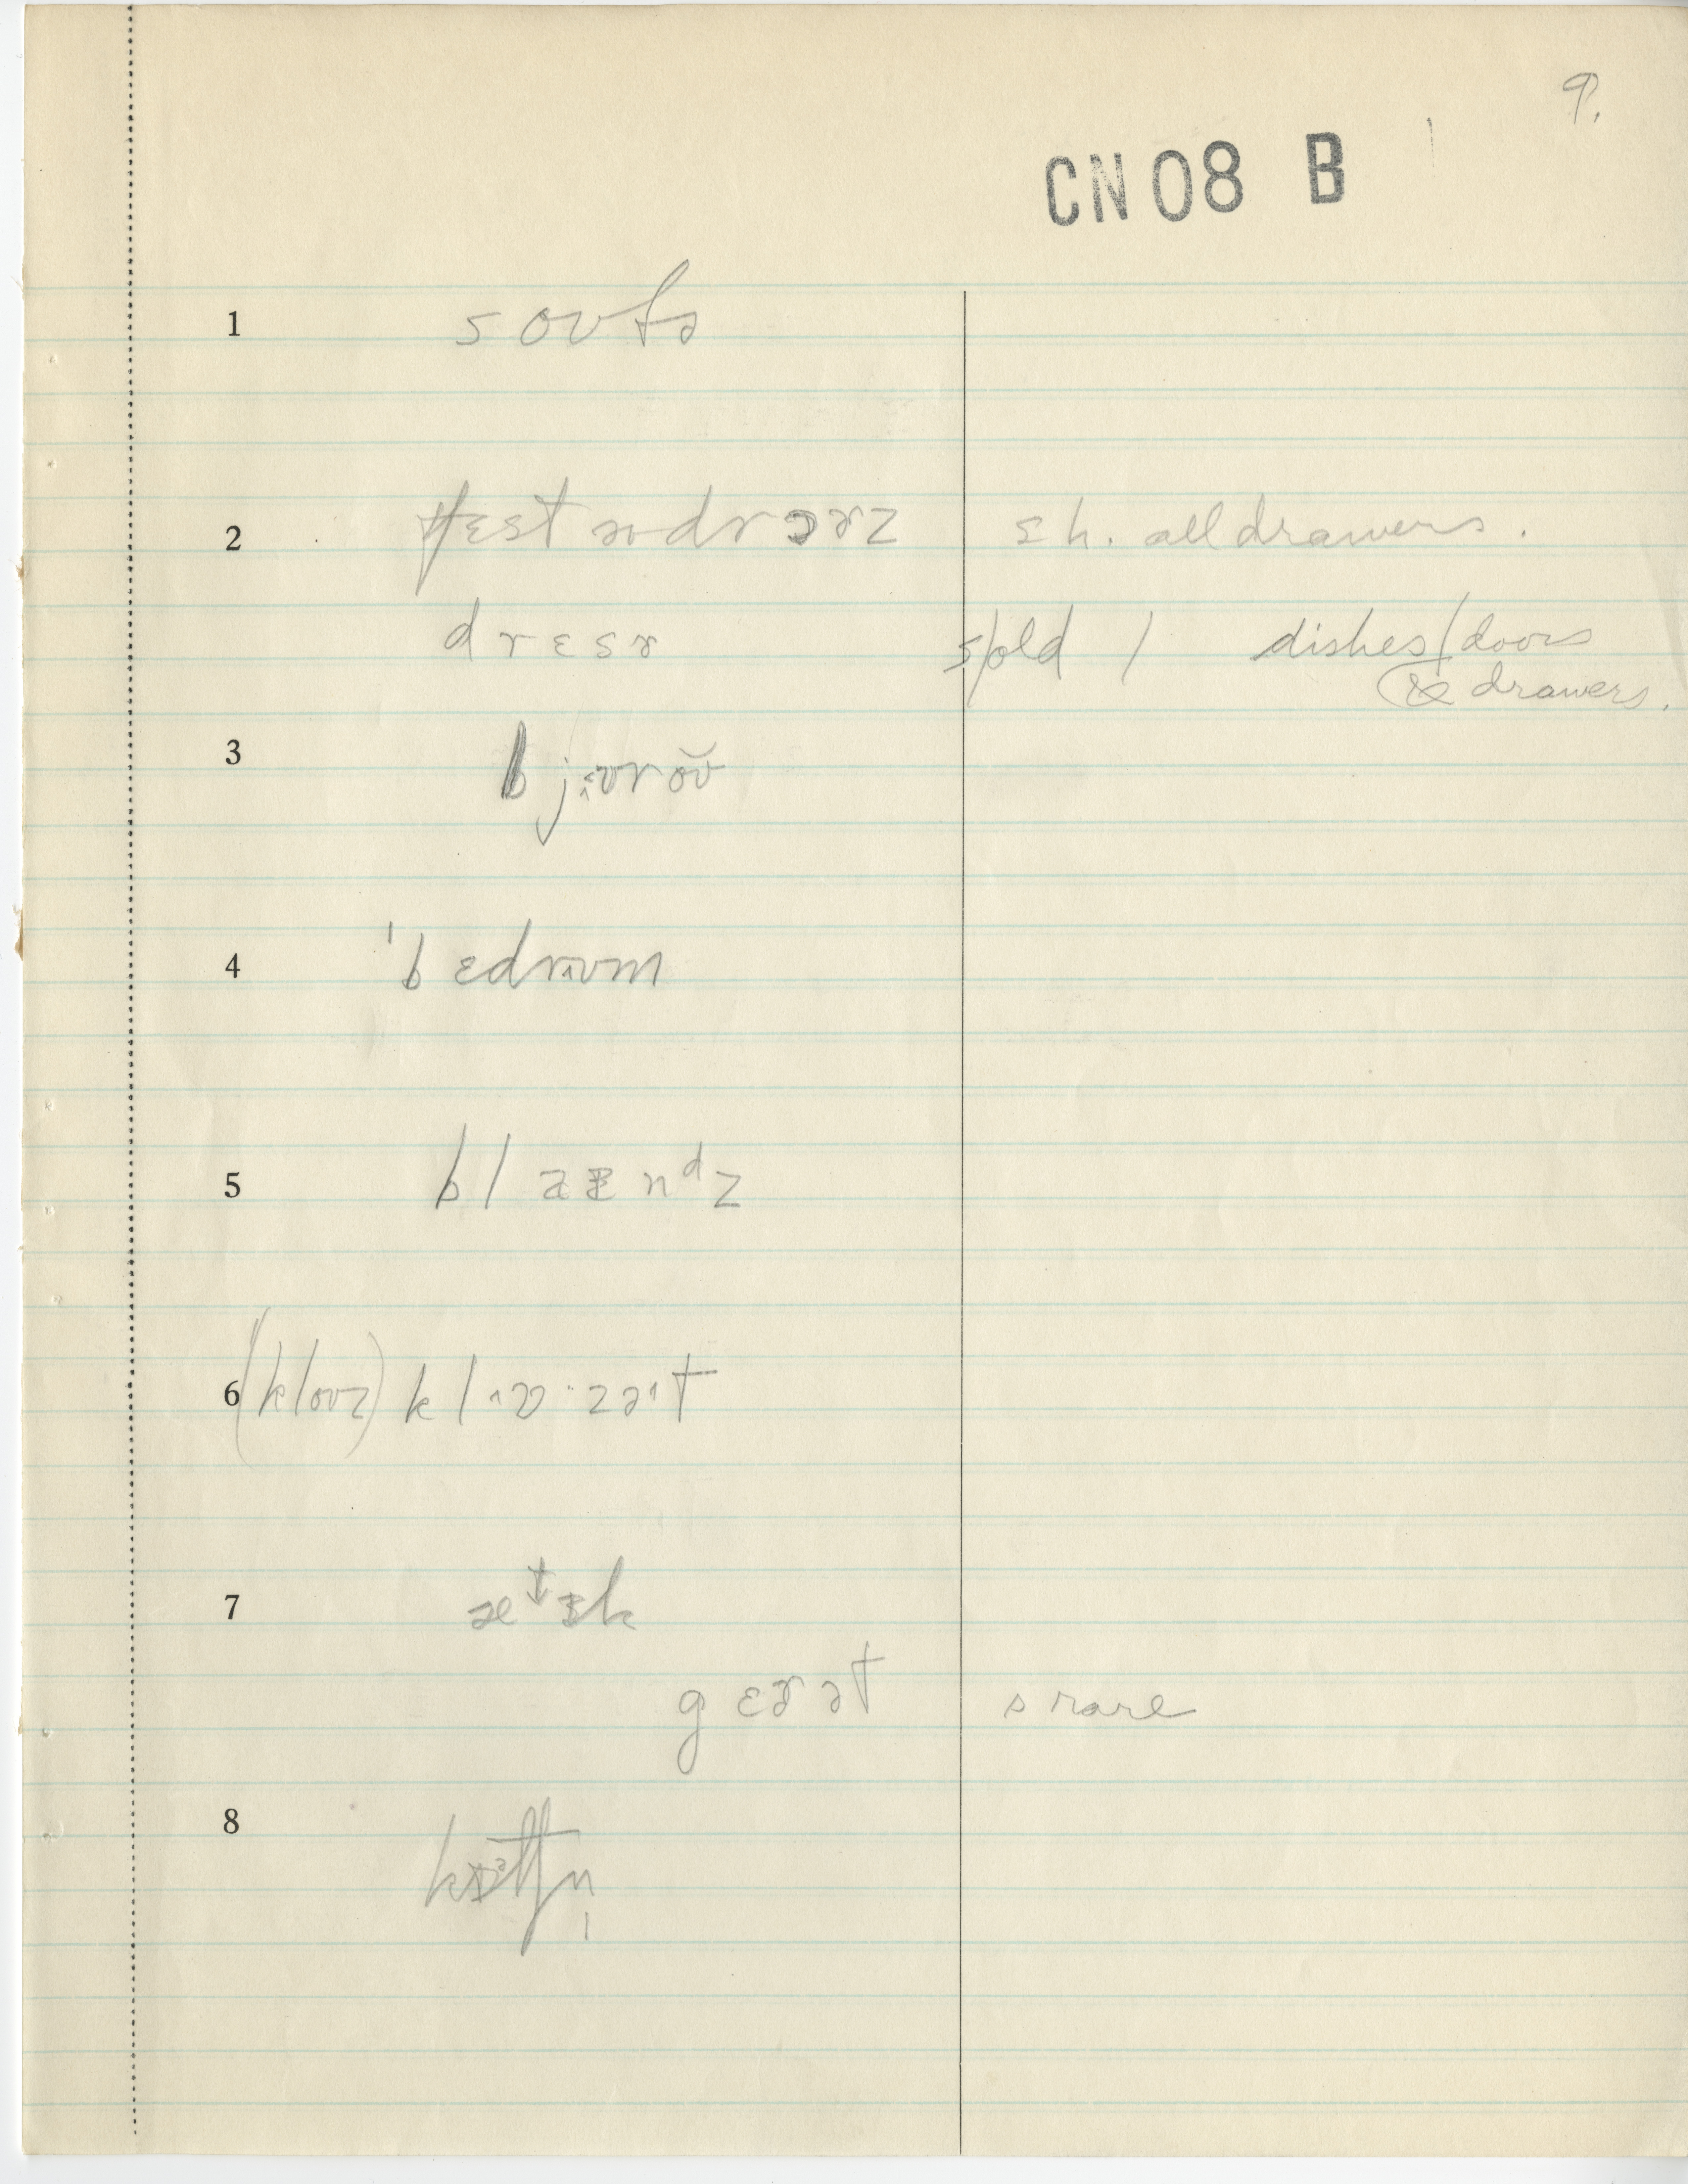 9.
CN 08 B
1 soʊfə
2 tʃɛst əv drɔɚz ɛ h. all drawers.
drɛsɚ s/old / dishes/doors
& drawers.
3 bjʊroʊ̆
4 ˈbɛdrʊm
5 blaɛnᵈz
6 (kloʊz) klʊ·zət
7 ætɪk
gɛɚət s rare
8 kɪtʃn̩